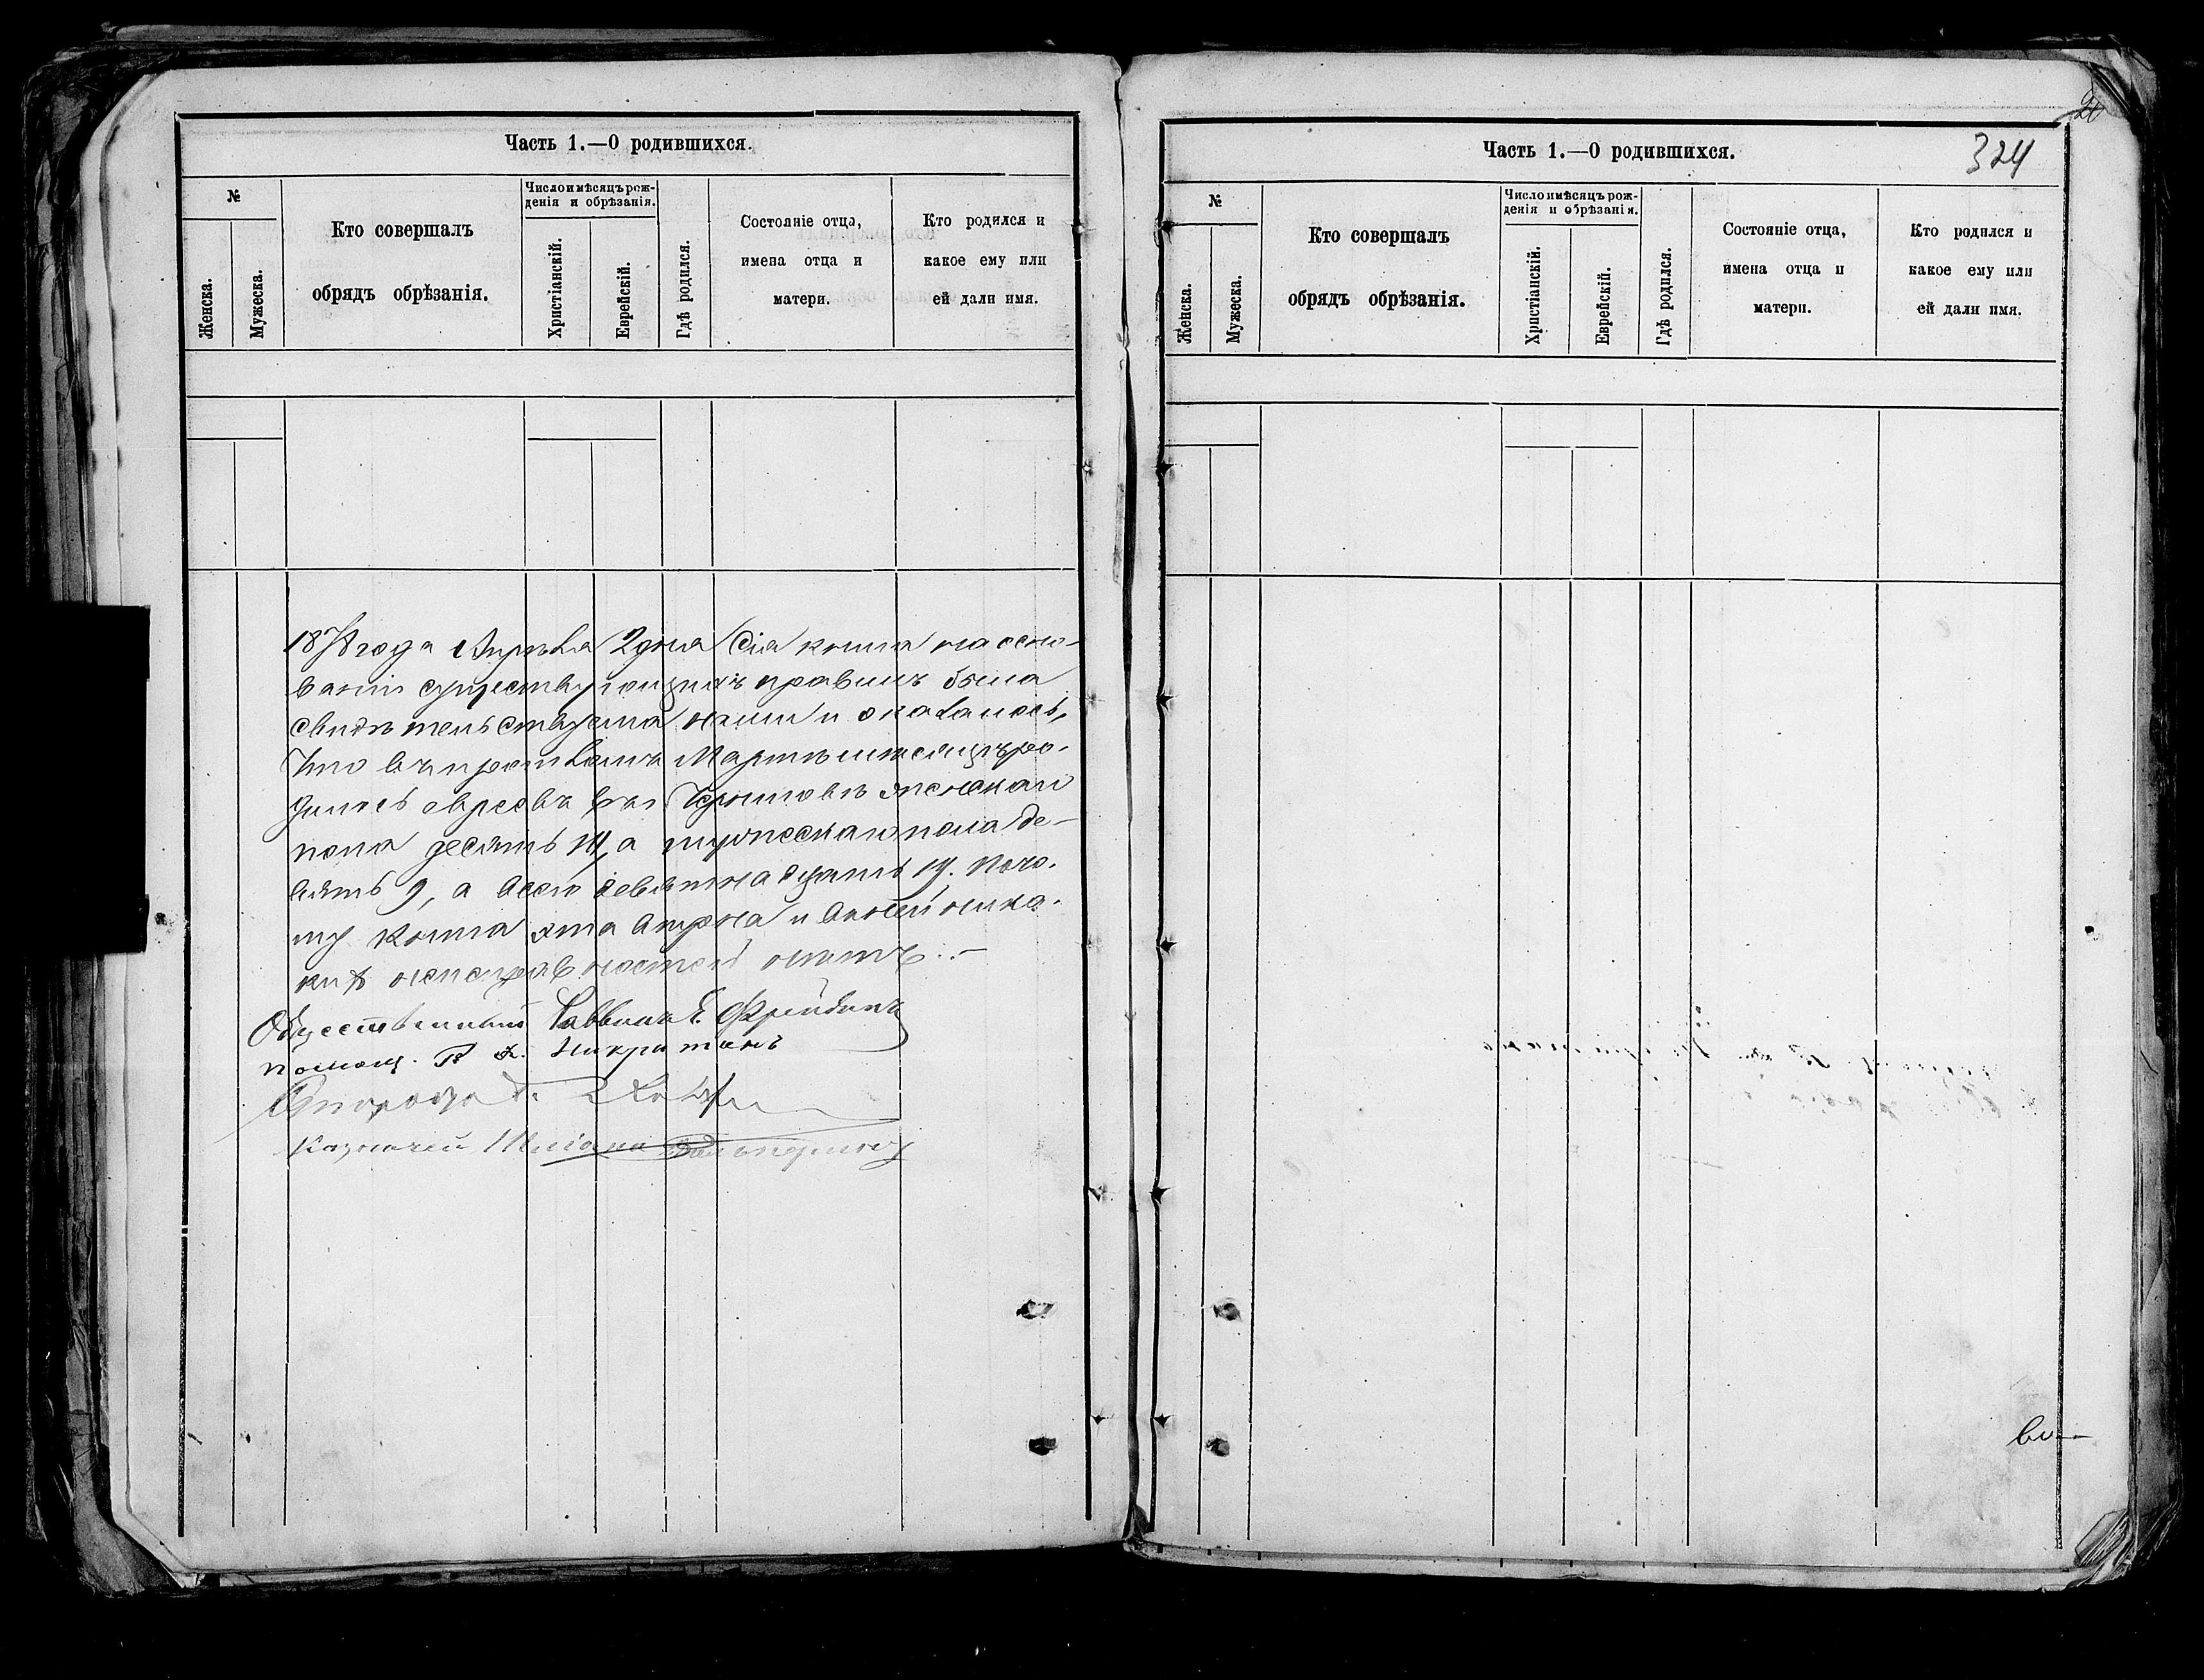 Часть 1.—О родившихся.
№
Женска.
Мужеска.
Кто совершалъ
обрядъ обрѣзанія.
Число и мѣсяцъ рож-
денія и обрѣзанія.
Христіанскій.
Еврейскій.
Гдѣ родился.
Состояніе отца,
имена отца и
матери.
Кто родился и
какое ему или
ей дали имя.
1878 года Апрѣля 2 дня Сія книга на осно-
ваніи существующихъ правилъ была
свидѣтельствуема нами и оказалось,
Что въ прошломъ Мартѣ мѣсяцѣ ро-
дилось евреевъ женскаго
пола десять 10, а мужескаго пола де-
вять 9, а всего девятнадцать 19. Пото-
му книга эта вѣрна и въ ней ника-
кихъ неисправностей нѣтъ.—
Общественный Раввинъ Е. Фрейдинъ
Помощ. Р.
Староста
Казначей
20
324
Часть 1.—О родившихся.
№
Женска.
Мужеска.
Кто совершалъ
обрядъ обрѣзанія.
Число и мѣсяцъ рож-
денія и обрѣзанія.
Христіанскій.
Еврейскій.
Гдѣ родился.
Состояніе отца,
имена отца и
матери.
Кто родился и
какое ему или
ей дали имя.